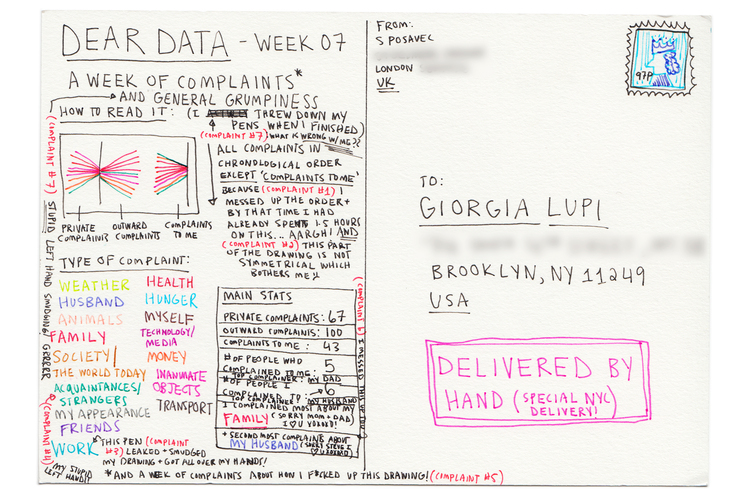 DEAR DATA - WEEK 07
A WEEK OF COMPLAINTS*
AND GENERAL GRUMPINESS
HOW TO READ IT: (I THREW DOWN MY
PENS WHEN I FINISHED)
(COMPLAINT #7) WHAT IS WRONG W/ME??
ALL COMPLAINTS IN
CHRONOLOGICAL ORDER
EXCEPT 'COMPLAINTS TO ME'
BECAUSE (COMPLAINT #1) I
MESSED UP THE ORDER +
BY THAT TIME I HAD
ALREADY SPENT 1.5 HOURS
ON THIS... AARGH! AND
(COMPLAINT #2) THIS PART
OF THE DRAWING IS NOT
SYMMETRICAL WHICH
BOTHERS ME
PRIVATE COMPLAINTS
OUTWARD COMPLAINTS
COMPLAINTS TO ME
TYPE OF COMPLAINT:
WEATHER
HUSBAND
ANIMALS
FAMILY
SOCIETY/
THE WORLD TODAY
ACQUAINTANCES/
STRANGERS
MY APPEARANCE
FRIENDS
WORK
HEALTH
HUNGER
MYSELF
TECHNOLOGY/
MEDIA
MONEY
INANIMATE
OBJECTS
TRANSPORT
THIS PEN (COMPLAINT
#3) LEAKED + SMUDGED
MY DRAWING + GOT ALL OVER MY HANDS!
MAIN STATS
PRIVATE COMPLAINTS: 67
OUTWARD COMPLAINTS: 100
COMPLAINTS TO ME: 43
# OF PEOPLE WHO
COMPLAINED TO ME: 5
TOP COMPLAINER: MY DAD
# OF PEOPLE I
COMPLAINED TO: 6
TOP COMPLAINEE: MY HUSBAND
I COMPLAINED MOST ABOUT MY
FAMILY (SORRY MOM + DAD)
I ♡ U XOXO!)
+ SECOND MOST COMPLAINS ABOUT
MY HUSBAND (SORRY STEVE I
♡ U XOXOXO)
(COMPLAINT #7) STUPID LEFT HAND SMUDGING! GRRRR
(COMPLAINT #4)
MY STUPID
LEFT HAND!!
(COMPLAINT 6) I MESSED THIS UP TOO
*AND A WEEK OF COMPLAINTS ABOUT HOW I F*CKED UP THIS DRAWING! (COMPLAINT #5)
FROM:
S POSAVEC
LONDON
UK
97P
TO:
GIORGIA LUPI
BROOKLYN, NY 11249
USA
DELIVERED BY
HAND (SPECIAL NYC
DELIVERY!)